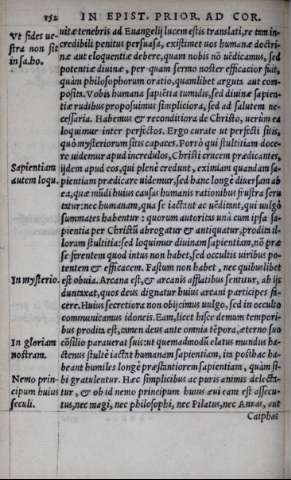 152 IN EPIST. PRIOR. AD COR.
Vt fides ue-
stra non sit
in sa.ho.
uitæ tenebris ad Euangelij lucem estis translati, re tam in-
credibili penitus persuasa, existimet uos humanæ doctri-
næ aut eloquentiæ debere, quam nobis nō uēdicamus, sed
potentiæ diuinæ, per quam sermo noster efficacior fuit,
quàm philosophorum oratio, quamlibet arguta aut com-
posita. Vobis humana sapiētia tumidis, sed diuinæ sapien-
tiæ rudibus proposuimus simpliciora, sed ad salutem ne-
cessaria. Habemus & reconditiora de Christo, uerùm ea
loquimur inter perfectos. Ergo curate ut perfecti sitis,
quò mysteriorum sitis capaces. Porrò qui stultitiam doce-
re uidemur apud incredulos, Christi crucem prædicantes,
Sapientiam
autem loqu.
ijdem apud eos, qui plenè credunt, eximiam quandam sa-
pientiam prædicare uidemur, sed hanc longè diuersam ab
ea, quæ mūdi huius causas humanis rationibus frustra scru
tatur: nec humanam, qua se iactant ac uēditant, qui uulgò
summates habentur: quorum autoritas unà cum ipsa sa-
pientia per Christū abrogatur & antiquatur, prodita il-
lorum stultitia: sed loquimur diuinam sapientiam, nō præ
se ferentem quod intus non habet, sed occultis uiribus po-
tentem & efficacem. Fastum non habet, nec quibuslibet
In mysterio.
est obuia. Arcana est, & arcanis afflatibus sentitur, ab ijs
duntaxat, quos deus dignatur huius arcani participes fa-
cere. Huius secretiora non obijcimus uulgo, sed in occulto
communicamus idoneis. Eam, licet hisce demum tempori-
bus prodita est, tamen deus ante omnia tēpora, æterno suo
In gloriam
nostram.
cōsilio parauerat suis: ut quemadmodū elatus mundus ha-
ctenus stultè iactat humanam sapientiam, ita posthac ha-
beant humiles longè præstantiorem sapientiam, quàm si-
Nemo prin-
cipum huius
seculi.
bi gratulentur. Hæc simplicibus ac puris animis delecta-
tur, & ob id nemo principum huius æui eam est assecu-
tus, nec magi, nec philosophi, nec Pilatus, nec Annas, aut
Caiphas